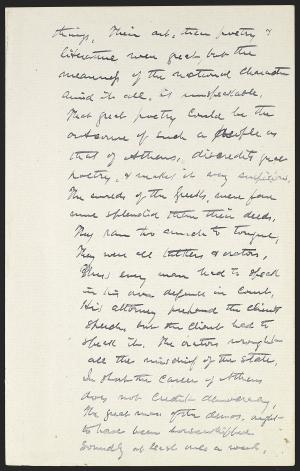 things. Their art, their poetry &
literature were great but the
meanness of the national character
amid it all, is unspeakable.
That great poetry could be the
outcome of such a people as
that of Athens, discredits great
poetry, & makes it very suspicious.
The words of the Greeks, were far
more splendid than their deeds.
They ran too much to tongue,
They were all talkers & orators,
every man had to speak
in his own defense in court,
His attorney prepared the client's
speech, but the client had to
speak it. The orators wrought
all the mischief of the State.
In short the career of Athens
does not credit democracy,
The great mass of the demos, ought
to have been horsewhipped
soundly at least once a week.